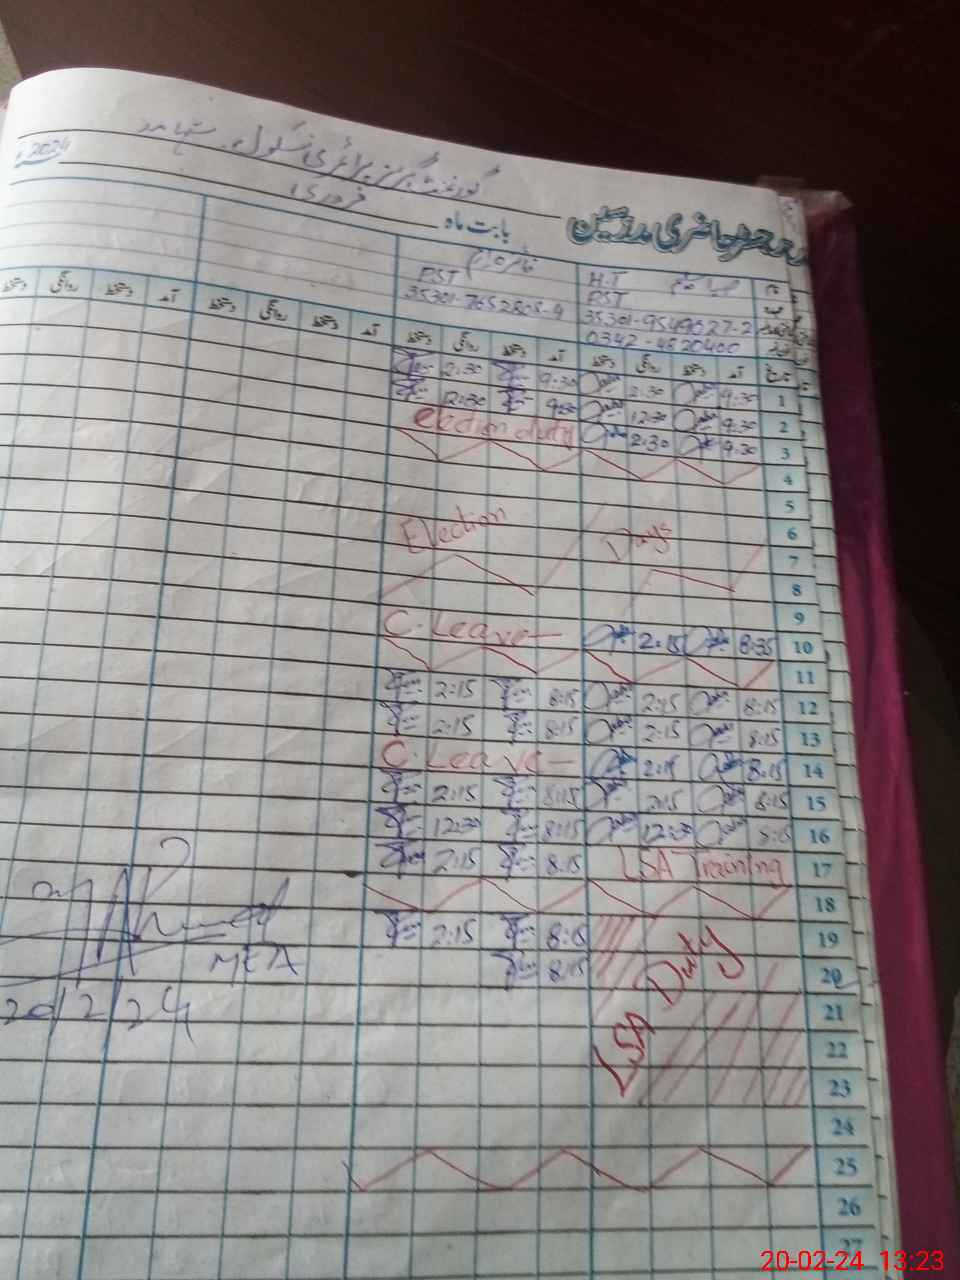 گورنمنٹ گرلز پرائمری سکول
2024
رجسٹر حاضری مدرسین بابت ماہ فروری
H.T
PST PST
35301-9549027-2 35301-7652808-9
0342-4820400
آمد دستخط روانگی دستخط آمد دستخط روانگی دستخط آمد دستخط روانگی دستخط
1 9:30 2:30 9:30 2:30
2 9:30 12:30 9:30 12:30
3 9:30 2:30 election duty
4
5
6 Days Election
7
8
9
10 8:35 2:15 C. Leave
11
12 8:15 2:15 8:15 2:15
13 8:15 2:15 8:15 2:15
14 8:15 2:15 C. Leave
15 8:15 2:15 8:15 2:15
16 8:15 12:30 8:15 12:30
17 LSA Training 8:15 2:15
18
19 8:15 2:15
20 8:15
LSA Duty
21
22
23
24
25
26
27
MEA
20/2/24
20-02-24 13:23